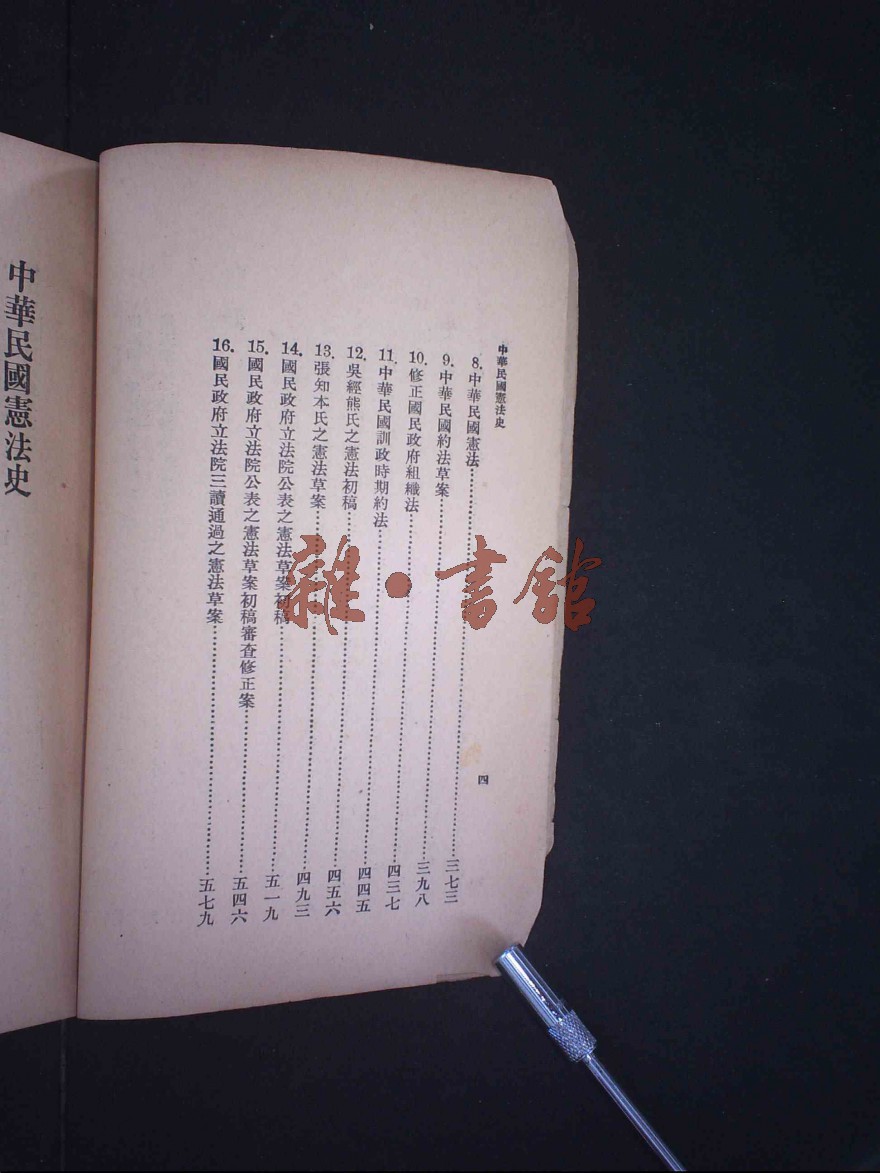 中華民國憲法史
8. 中華民國憲法……三七三
9. 中華民國約法草案……三九八
10. 修正國民政府組織法……四三七
11. 中華民國訓政時期約法……四四五
12. 吳經熊氏之憲法初稿……四五六
13. 張知本氏之憲法草案……四九三
14. 國民政府立法院公表之憲法草案初稿……五一九
15. 國民政府立法院公表之憲法草案初稿審查修正案……五四六
16. 國民政府立法院三讀通過之憲法草案……五七九
四
中華民國憲法史
雜·書館